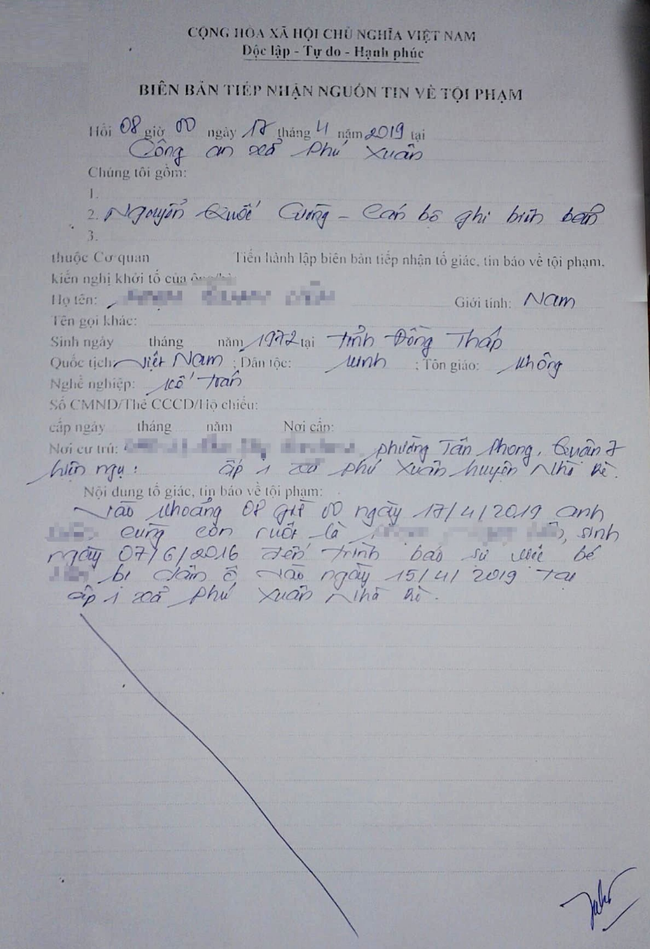 CỘNG HÒA XÃ HỘI CHỦ NGHĨA VIỆT NAM
Độc lập - Tự do - Hạnh phúc
BIÊN BẢN TIẾP NHẬN NGUỒN TIN VỀ TỘI PHẠM
Hồi 08 giờ 00 ngày 17 tháng 4 năm 2019 tại
Công an xã Phú Xuân
Chúng tôi gồm:
1.
2. Nguyễn Quốc Cường - Cán bộ ghi biên bản
3.
thuộc Cơ quan Tiến hành lập biên bản tiếp nhận tố giác, tin báo về tội phạm,
kiến nghị khởi tố của ông/bà:
Họ tên: Giới tính: Nam
Tên gọi khác:
Sinh ngày tháng năm 1972 tại tỉnh Đồng Tháp
Quốc tịch: Việt Nam ; Dân tộc: Kinh ; Tôn giáo: Không
Nghề nghiệp:
Số CMND/Thẻ CCCD/Hộ chiếu:
cấp ngày tháng năm Nơi cấp:
Nơi cư trú: phường Tân Phong, Quận 7
hiện ngụ: ấp 1 xã Phú Xuân huyện Nhà Bè.
Nội dung tố giác, tin báo về tội phạm:
Vào khoảng 08 giờ 00 ngày 17/4/2019 anh
cùng con ruột là , sinh
ngày 07/6/2016 đến trình báo sự việc bé
bị dâm ô vào ngày 15/4/2019 tại
ấp 1 xã Phú Xuân Nhà Bè.